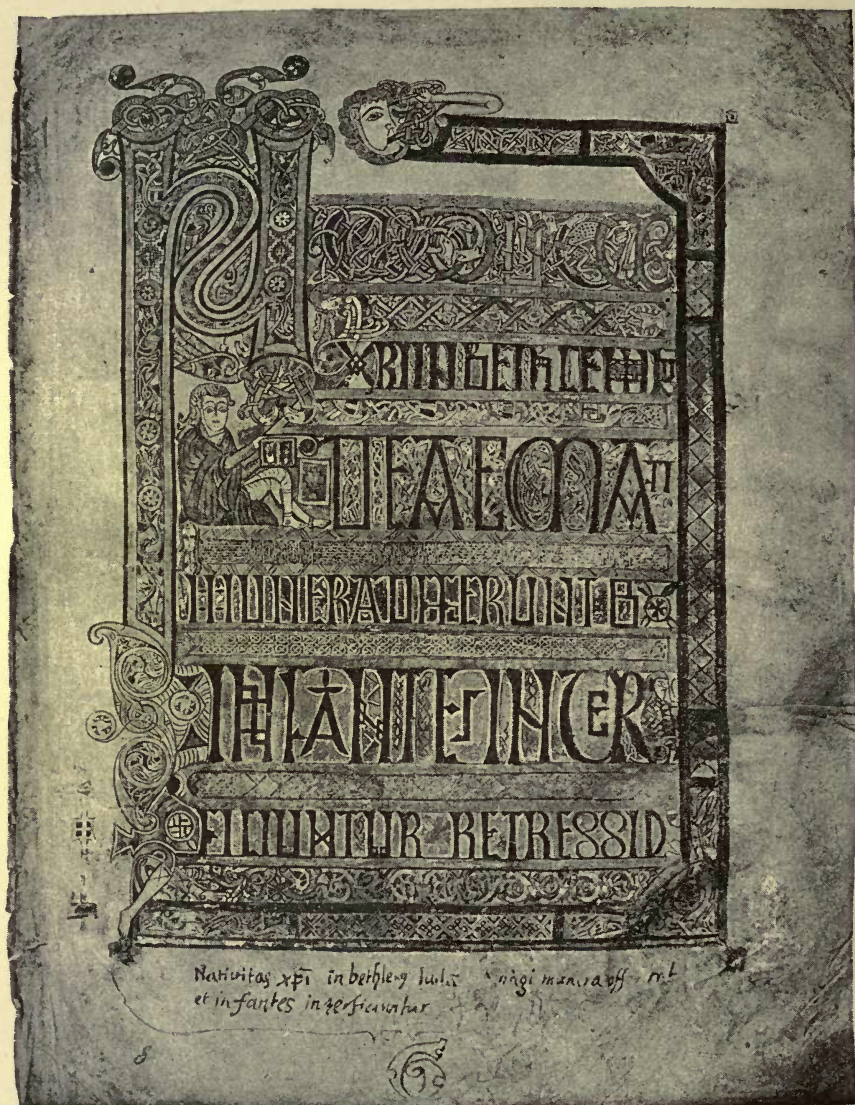 NATIUITAS
XPI IN BETHLEM
IUDEAE MAGI
MUNERA OFFERUNT ET
INFANTES INTER
FICIUNTUR REGRESSIO
Nativitas xpi in bethlem magi munera
et infantes interficiuntur
8